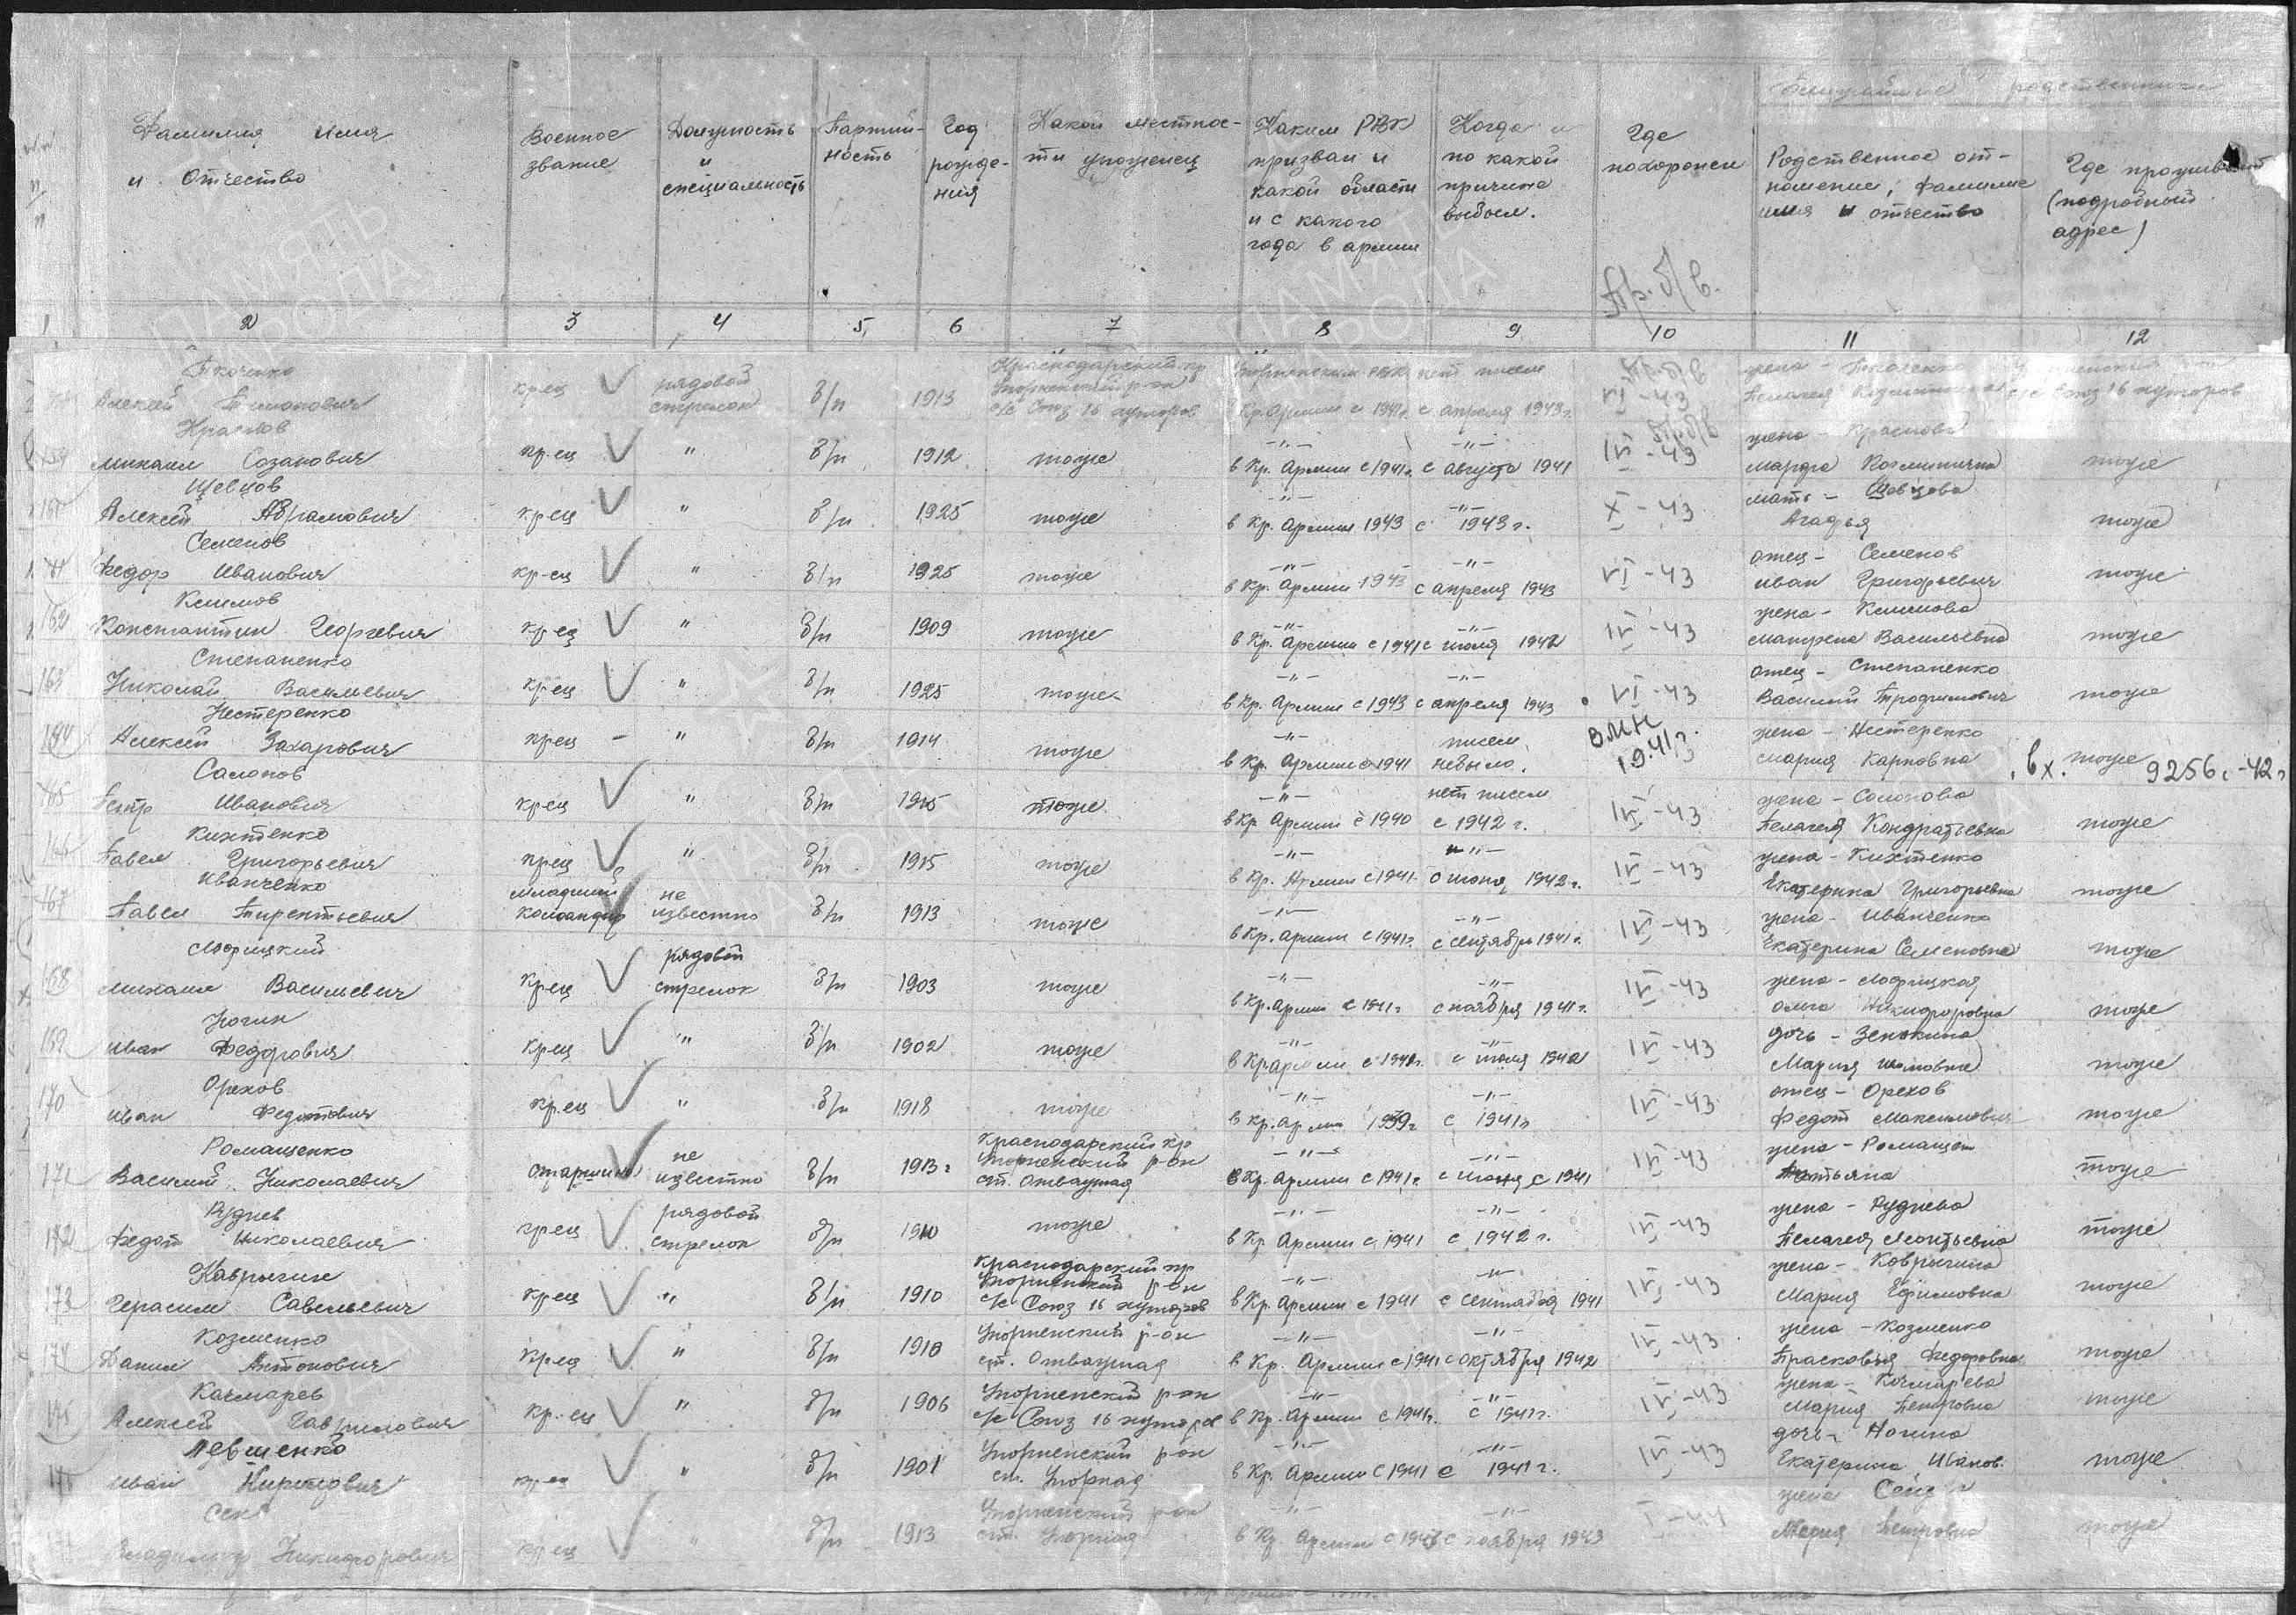 Фамилия имя и отчество
Военное звание
Должность и специальность
Партийность
Год рождения
Какой местности уроженец
Каким РВК призван и какой области и с какого года в армии
Когда и по какой причине выбыл.
Где похоронен
Пр. б/в.
Ближайшие родственники
Родственное отношение, фамилие имя и отчество
Где проживает (подробный адрес)
1 2 3 4 5 6 7 8 9 10 11 12
Ткаченко Алексей кр-ец рядовой стрелок б/п 1913 Краснодарский кр Упорненский р-он с/с Союз 16 хуторов Упорненским РВК Кр. Армии с 1941г. нет писем с апреля 1943г. пр. б/в VI-43 жена - Ткаченко Пелагея с/с Союз 16 хуторов
Краснов Михаил Созанович кр-ец " б/п 1912 тоже -"- в Кр. Армии с 1941г. -"- с августа 1941 пр. б/в IV-43 жена - Краснова Марфа тоже
160 Шевцов Алексей Абрамович кр-ец " б/п 1925 тоже -"- в Кр. Армии 1943 -"- с 1943 г. X-43 мать - Шевцова Агафья тоже
161 Семенов Федор Иванович кр-ец " б/п 1925 тоже -"- в Кр. Армии 1943 -"- с апреля 1943 VI-43 отец - Семенов Иван Григорьевич тоже
162 Климов Константин Георгевич кр-ец " б/п 1909 тоже -"- в Кр. Армии с 1941 -"- с июля 1942 IV-43 жена - Климова Васильевна тоже
163 Степаненко Николай Васильевич кр-ец " б/п 1925 тоже -"- в Кр. Армии с 1943 -"- с апреля 1943 VI-43 отец - Степаненко Василий Трофимович тоже
164 Нестеренко Алексей Захарович кр-ец - " б/п 1914 тоже -"- в Кр. Армии с 1941 писем небыло. ВМН 1941г. жена - Нестеренко Мария Карповна тоже вх. 9256с-42г
165 Салонов Петр Иванович кр-ец " б/п 1915 тоже -"- в Кр. Армии с 1940 нет писем с 1942 г. IV-43 жена - Солонова Пелагея Кондратьевна тоже
166 Кихтенко Павел Григорьевич кр-ец " б/п 1915 тоже -"- в Кр. Армии с 1941 -"- с июня 1942 г. IV-43 жена - Кихтенко Екатерина Григорьевна тоже
167 Иванченко Павел Терентьевич младший командир не известно б/п 1913 тоже -"- в Кр. армии с 1941г. -"- с сентября 1941 г. IV-43 жена - Иванченко Екатерина Семеновна тоже
168 Мафрицкий Михаил Васильевич кр-ец рядовой стрелок б/п 1903 тоже -"- в Кр. армии с 1941г -"- с ноября 1941 г. IV-43 жена - Мафрицкая Ольга Никифоровна тоже
169 Ногин Иван Федорович кр-ец " б/п 1902 тоже -"- в Кр. армии -"- с июля 1942 IV-43 дочь - Зенюкина Мария Ивановна тоже
170 Орехов Иван Федотович кр-ец " б/п 1918 тоже -"- в Кр. армии 1939г -"- с 1941г IV-43 отец - Орехов Федот Максимович тоже
171 Ромащенко Василий Николаевич старшина не известно б/п 1913 г Краснодарский кр Упорненский р-он ст. Отважная -"- в Кр. Армии с 1941г. -"- с июня с 1941 IV-43 жена - Ромащен Татьяна тоже
172 Руднев Федот Николаевич кр-ец рядовой стрелок б/п 1910 тоже -"- в Кр. Армии с 1941 -"- с 1942 г. IV-43 жена - Руднева Пелагея Леонтьевна тоже
173 Каврыгин Герасим Савельевич кр-ец " б/п 1910 Краснодарский кр Упорненский р-он с/с Союз 16 хуторов -"- в Кр. Армии с 1941 -"- с сентября 1941 IV-43 жена - Коврыгина Мария Ефимовна тоже
174 Козменко Данил Антонович кр-ец " б/п 1910 Упорненский р-он ст. Отважная -"- в Кр. Армии с 1941 -"- с октября 1942 IV-43 жена - Козменко Прасковья Федоровна тоже
175 Качмарев Алексей Гаврилович кр-ец " б/п 1906 Упорненский р-он с/с Союз 16 хуторов -"- в Кр. Армии с 1941г. -"- с 1941г. IV-43 жена - Кочмарева Мария Петровна тоже
Левшенко Иван кр-ец " б/п 1901 Упорненский р-он ст. Упорная -"- в Кр. Армии с 1941 -"- с 1941 г. IV-43 дочь - Екатерина Иванов. тоже
Владимир Никифорович кр-ец " б/п 1913 Упорненский р-он ст. Упорная -"- в Кр. Армии -"- с ноября 1943 I-44 жена Мария Петровна тоже
ПАМЯТЬ НАРОДА